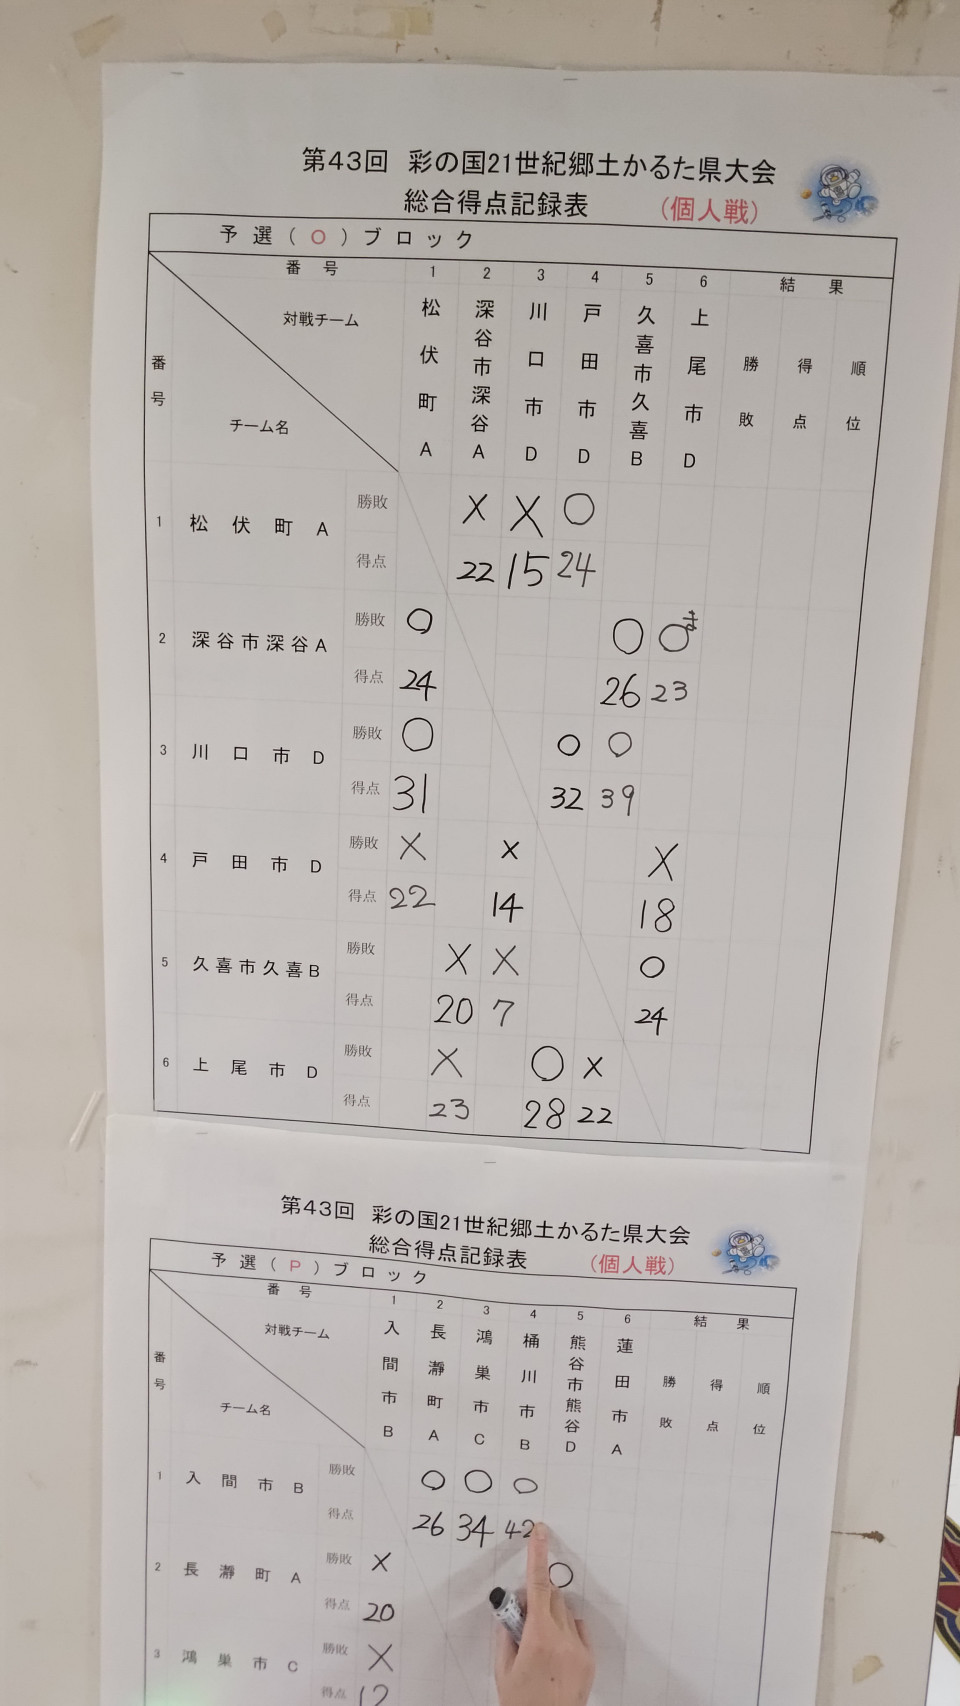 第43回 彩の国21世紀郷土かるた県大会
総合得点記録表 (個人戦)
予選(O)ブロック
番号 1 2 3 4 5 6 結果
対戦チーム 松伏町A 深谷市深谷A 川口市D 戸田市D 久喜市久喜B 上尾市D 勝敗 得点 順位
番号
チーム名
1 松伏町A 勝敗 X X ○
得点 22 15 24
2 深谷市深谷A 勝敗 ○ ○ ○
得点 24 26 23
3 川口市D 勝敗 ○ ○ ○
得点 31 32 39
4 戸田市D 勝敗 X X X
得点 22 14 18
5 久喜市久喜B 勝敗 X X ○
得点 20 7 24
6 上尾市D 勝敗 X ○ X
得点 23 28 22
第43回 彩の国21世紀郷土かるた県大会
総合得点記録表 (個人戦)
予選(P)ブロック
番号 1 2 3 4 5 6 結果
対戦チーム 入間市B 長瀞町A 鴻巣市C 桶川市B 熊谷市熊谷D 蓮田市A 勝敗 得点 順位
番号
チーム名
1 入間市B 勝敗 ○ ○ ○
得点 26 34 42
2 長瀞町A 勝敗 X ○
得点 20
3 鴻巣市C 勝敗 X
得点 12